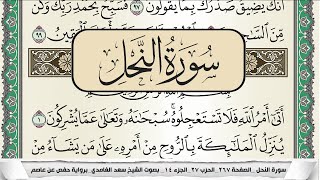 أَنَّكَ يَضِيقُ صَدْرُكَ بِمَا يَقُولُونَ ٩٧ فَسَبِّحْ بِحَمْدِ رَبِّكَ وَكُن
مِّنَ
٩٩
سُورَةُ النَّحْلِ
أَتَىٰٓ أَمْرُ ٱللَّهِ فَلَا تَسْتَعْجِلُوهُ ۚ سُبْحَـٰنَهُۥ وَتَعَـٰلَىٰ عَمَّا يُشْرِكُونَ ١
يُنَزِّلُ ٱلْمَلَـٰٓئِكَةَ بِٱلرُّوحِ مِنْ أَمْرِهِۦ عَلَىٰ مَن يَشَآءُ مِنْ
سورة النحل . الصفحة ٢٦٧ . الحزب ٢٧ . الجزء ١٤ . بصوت الشيخ سعد الغامدي . برواية حفص عن عاصم